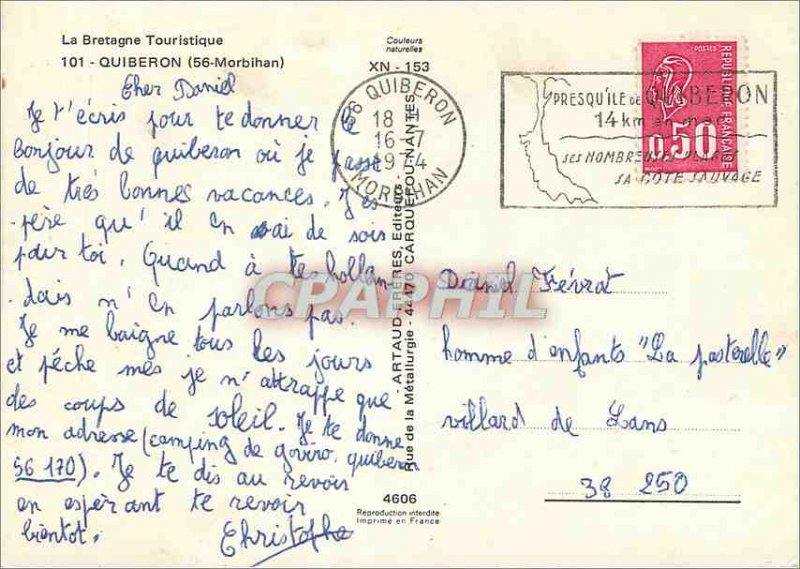 La Bretagne Touristique
101 - QUIBERON (56-Morbihan)
Couleurs
naturelles
XN - 153
Cher Daniel
Je t'écris pour te donner le
bonjour de quiberon où je passe
de très bonnes vacances. J'es
père qu'il en vai de sois
pour toi. Quand à tes hollan-
dais n'en parlons pas.
Je me baigne tous les jours
et pêche mes je n'attrappe que
des coups de soleil. Je te donne
mon adresse (camping de goviro, quiberon
56 170). Je te dis au revoir
en espèrant te revoir
bientot.
Christophe
56 QUIBERON
18 H
16 -7
1974
MORBIHAN
PRESQU'ILE DE QUIBERON
14 km en mer
SES NOMBREUSES PLAGES
SA COTE SAUVAGE
POSTES
REPUBLIQUE FRANÇAISE
0,50
- ARTAUD FRÈRES, Editeurs -
Rue de la Métallurgie - 44470 CARQUEFOU-NANTES
Daniel Févrat
homme d'enfants "La pasterelle"
villard de Lans
38 250
4606
Reproduction interdite
Imprimé en France
CPAPHIL